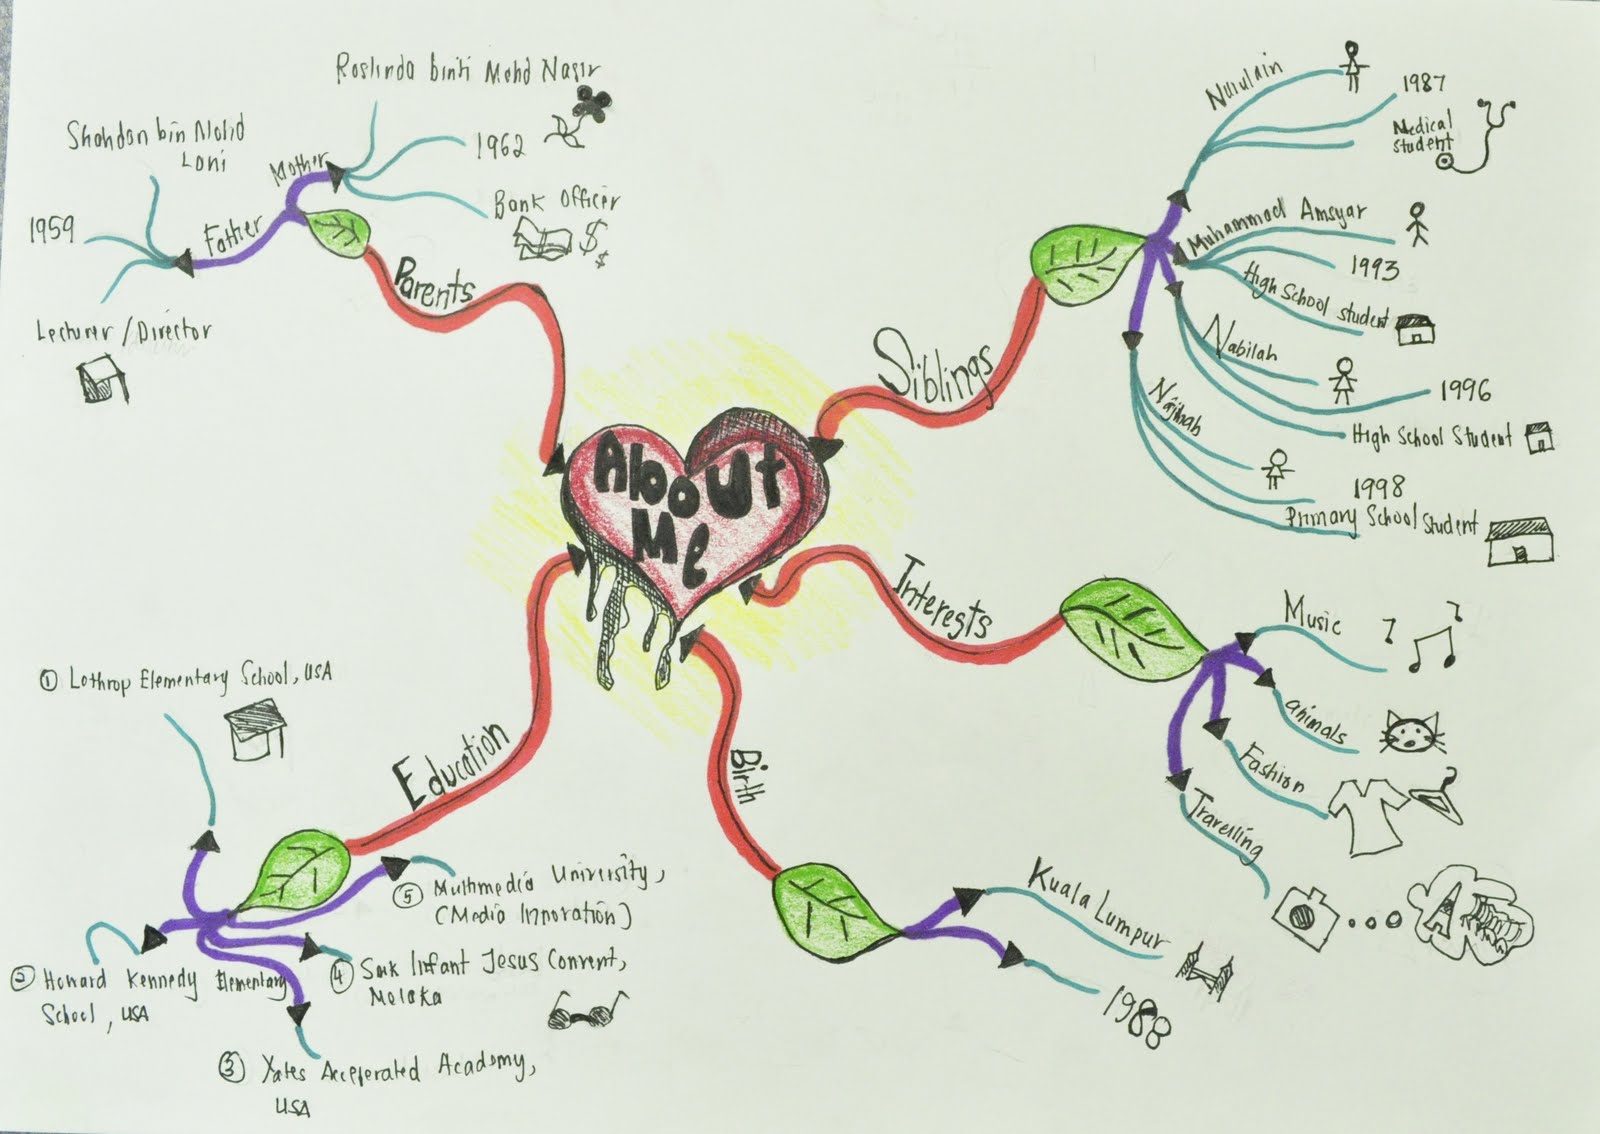 About
Me
Parents
Mother
Roslinda binti Mohd Nasir
1962
Bank Officer
$
$
Father
Shahdan bin Mohd
Lani
1959
Lecturer / Director
Siblings
Nurulain
1987
Medical
student
Muhammad Amsyar
1993
High School student
Nabilah
1996
High School Student
Najihah
1998
Primary School Student
Interests
Music
animals
Fashion
Travelling
A
Birth
Kuala Lumpur
1988
Education
① Lothrop Elementary School, USA
② Howard Kennedy Elementary
School, USA
③ Yates Accelerated Academy,
USA
④ Smk Infant Jesus Convent,
Melaka
⑤ Multimedia University,
(Media Innovation)